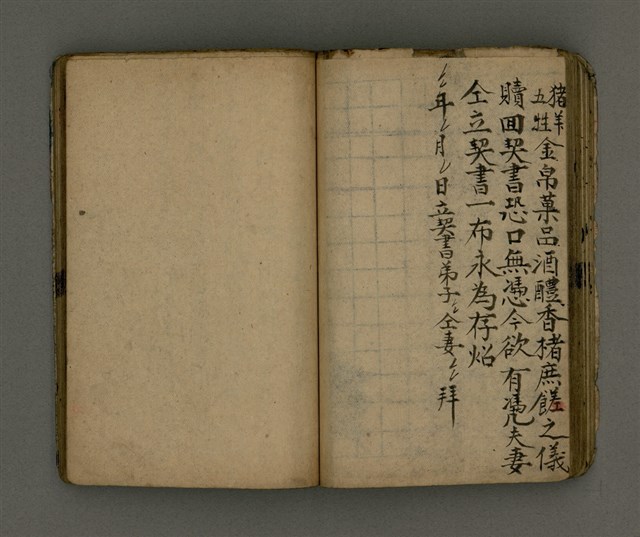 猪羊
五牲金帛菓品酒醴香楮庶饈之儀
贖回契書恐口無憑今欲有憑夫妻
仝立契書一布永為存炤
〻年〻月〻日立契書弟子〻仝妻〻拜